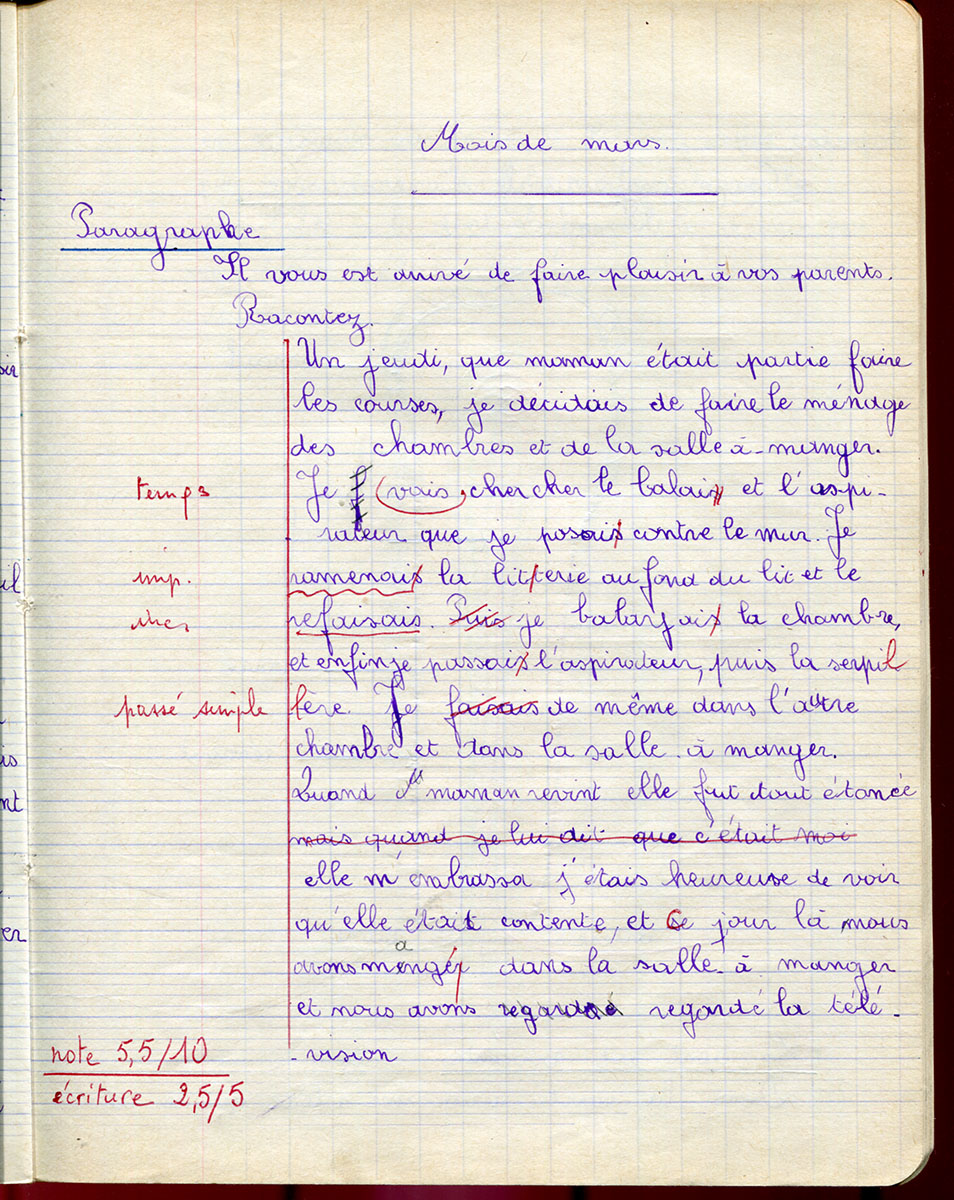 Mois de mars.
Paragraphe
Il vous est arrivé de faire plaisir à vos parents.
Racontez.
Un jeudi, que maman était partie faire
les courses, je décidais de faire le ménage
des chambres et de la salle à-manger.
temps Je f vais chercher le balais et l'aspi-
rateur que je posais contre le mur. Je
imp. ramenais la litterie au fond du lit et le
refaisais. Puis je balayais la chambre,
et enfin je passais l'aspirateur, puis la serpil
passé simple lère. Je faisais de même dans l'autre
chambre et dans la salle à manger.
Quand maman revint elle fut tout étonée
mais quand je lui dit que c'était moi
elle m'embrassa j'étais heureuse de voir
qu'elle était contente, et ce jour là nous
avons manger dans la salle à manger
et nous avons regardé regardé la télé-
-vision
note 5,5/10
écriture 2,5/5